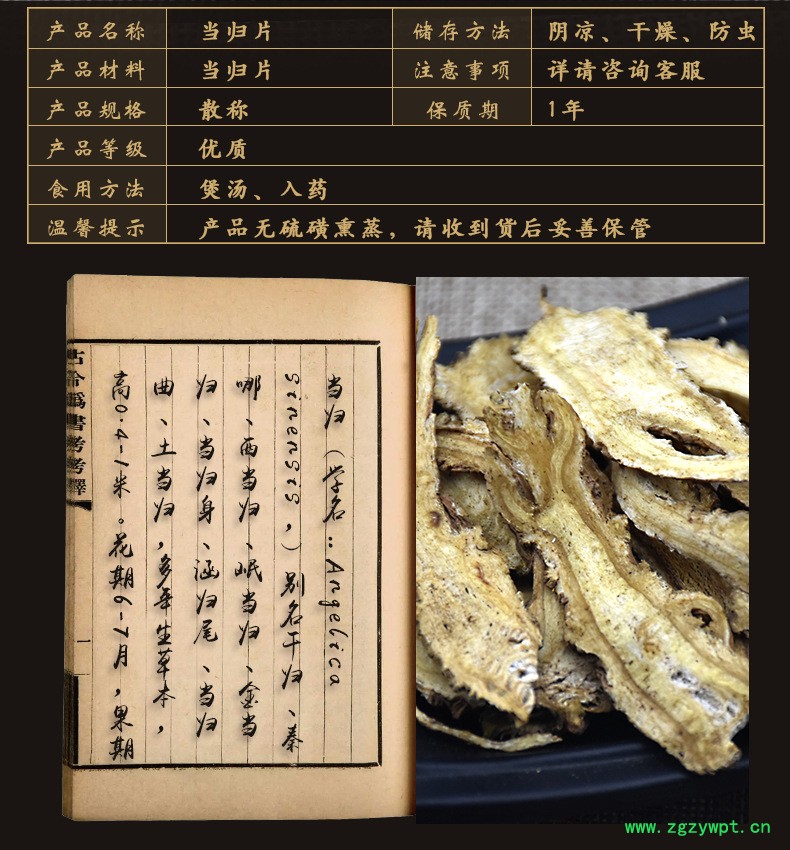 产品名称 当归片 储存方法 阴凉、干燥、防虫
产品材料 当归片 注意事项 详请咨询客服
产品规格 散称 保质期 1年
产品等级 优质
食用方法 煲汤、入药
温馨提示 产品无硫磺熏蒸，请收到货后妥善保管
当归（学名：Angelica
sinensis，）别名干归、秦
哪、西当归、岷当归、金当
归、当归身、涵归尾、当归
曲、土当归，多年生草本，
高0.4-1米。花期6-7月，果期
古今偽書考考釋
一
www.zgzywpt.cn